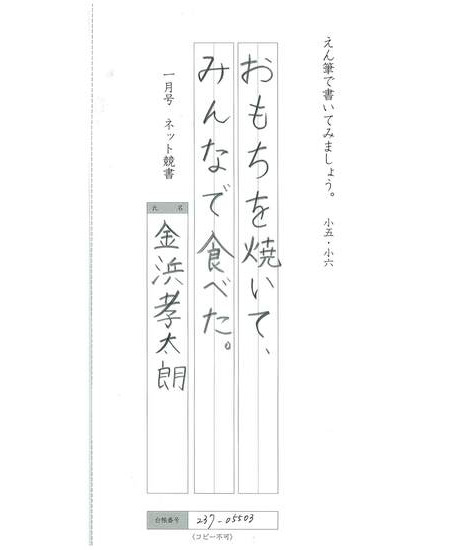 えん筆で書いてみましょう。 小五・小六
おもちを焼いて、
みんなで食べた。
一月号 ネット競書
氏名
金浜孝太朗
台帳番号 237-05503
《コピー不可》